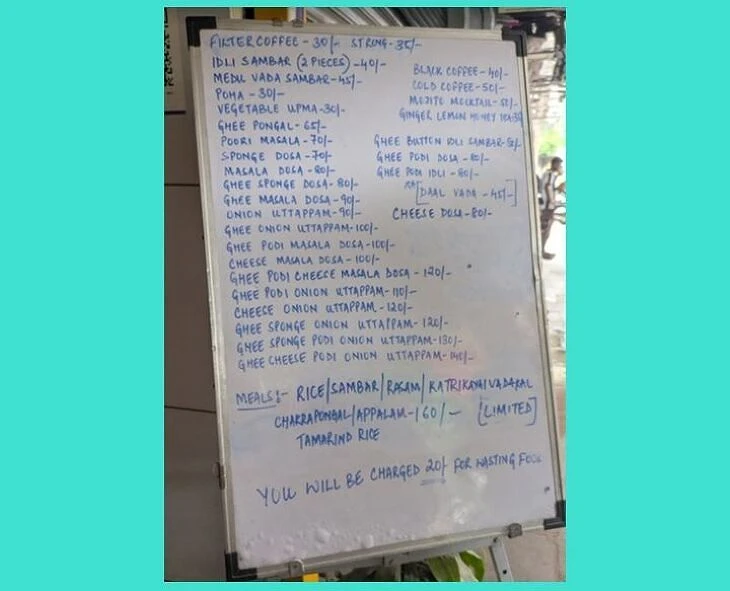 FILTER COFFEE - 30/- STRONG - 35/-
IDLI SAMBAR (2 PIECES) - 40/-
MEDU VADA SAMBAR - 45/-
POHA - 30/-
VEGETABLE UPMA - 30/-
GHEE PONGAL - 65/-
POORI MASALA - 70/-
SPONGE DOSA - 70/-
MASALA DOSA - 80/-
GHEE SPONGE DOSA - 80/-
GHEE MASALA DOSA - 90/-
ONION UTTAPPAM - 90/-
GHEE ONION UTTAPPAM - 100/-
GHEE PODI MASALA DOSA - 100/-
CHEESE MASALA DOSA - 100/-
GHEE PODI CHEESE MASALA DOSA - 120/-
GHEE PODI ONION UTTAPPAM - 110/-
CHEESE ONION UTTAPPAM - 120/-
GHEE SPONGE ONION UTTAPPAM - 120/-
GHEE SPONGE PODI ONION UTTAPPAM - 130/-
GHEE CHEESE PODI ONION UTTAPPAM - 140/-
BLACK COFFEE - 40/-
COLD COFFEE - 50/-
MOJITO MOCKTAIL - 50/-
GINGER LEMON HONEY TEA
GHEE BUTTON IDLI SAMBAR
GHEE PODI DOSA - 80/-
GHEE PODI IDLI - 80/-
[DAAL VADA - 45/-]
CHEESE DOSA - 80/-
MEALS :- RICE/SAMBAR/RASAM/KATRIKAYAI VADAKAL
CHAKRAPONGAL/APPALAM - 160/- [LIMITED]
TAMARIND RICE
YOU WILL BE CHARGED 20/- FOR WASTING FOOD